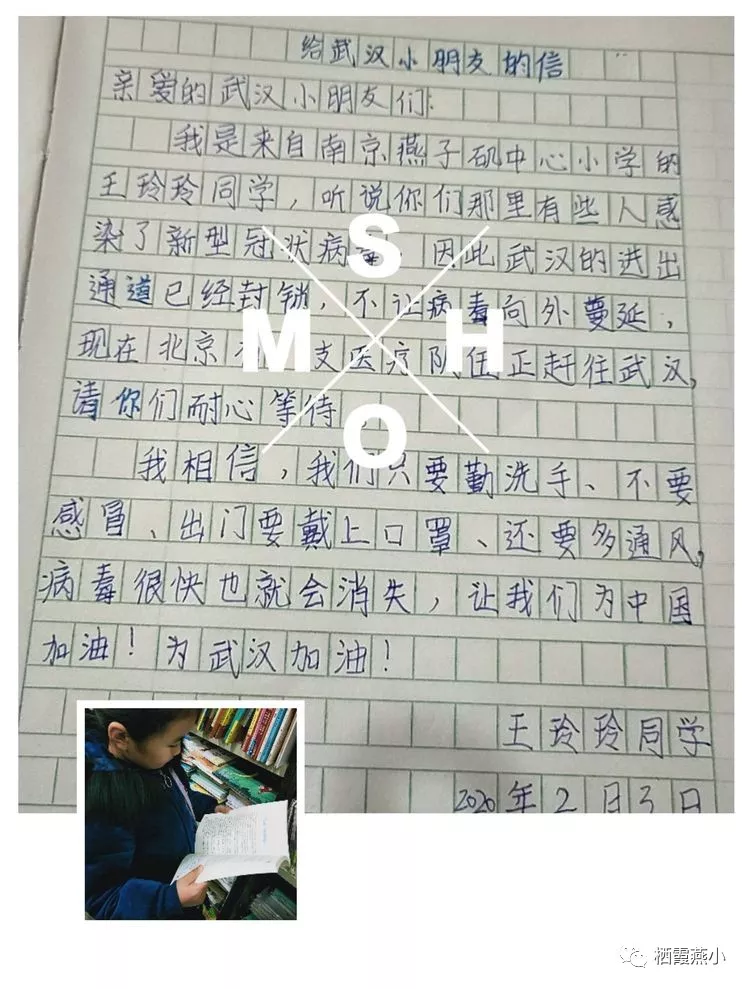 给武汉小朋友的信
亲爱的武汉小朋友们:
我是来自南京燕子矶中心小学的
王玲玲同学，听说你们那里有些人感
染了新型冠状病毒 因此武汉的进出
通道已经封锁，不让病毒向外蔓延，
现在北京 支医疗队伍正赶往武汉，
请你们耐心等待
我相信，我们只要勤洗手、不要
感冒、出门要戴上口罩、还要多通风，
病毒很快也就会消失，让我们为中国
加油！为武汉加油！
王玲玲同学
2020年2月3日
S
M H
O
栖霞燕小